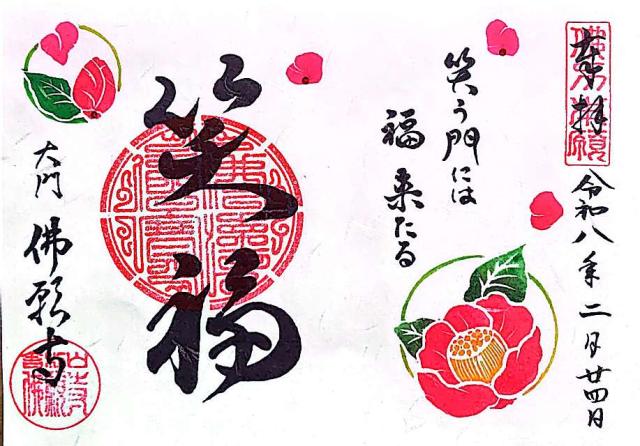 奉拝
令和八年二月廿四日
笑う門には
福来たる
笑
福
大門
佛願寺